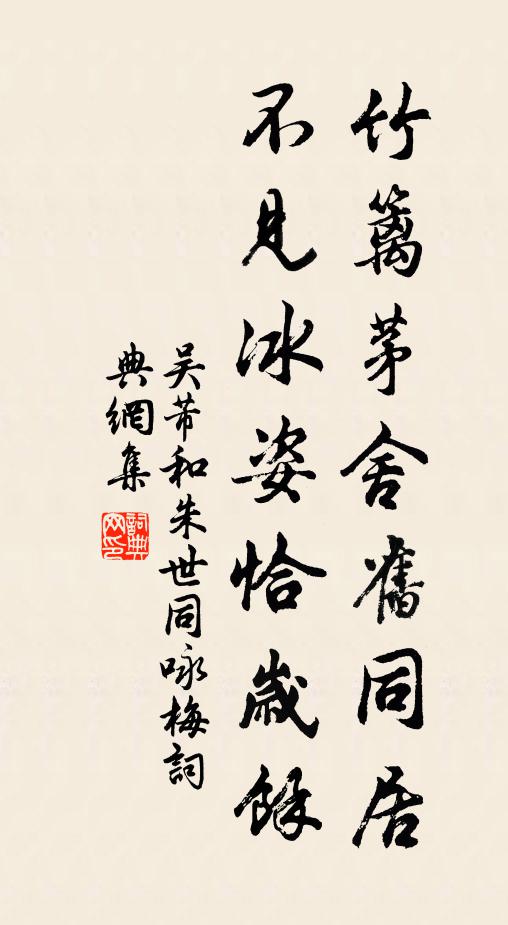 竹籬茅舍舊同居
不見冰姿恰歲餘
吴芾和朱世同咏梅詞
典網集
詞典網印